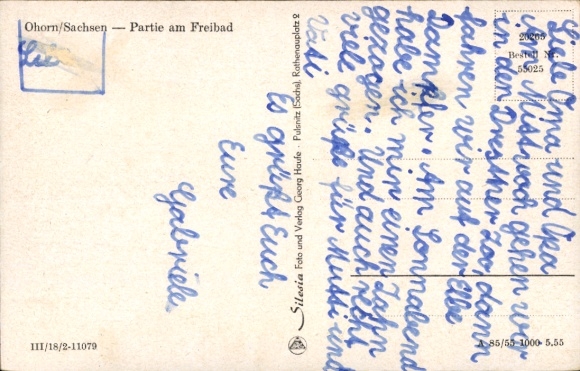 Ohorn/Sachsen — Partie am Freibad
20265
Bestell Nr.
55025
Liebe Oma und Opa
am Mittwoch gehen wir
in den Dresdner Zoo, dann
fahren wir auf der Elbe
Dampfer. Am Sonnabend
habe ich mir einen Zahn
gezogen. Und auch recht
viele grüße für Mutti und
Vati
Es grüßt Euch
Eure
Gabriele
Silesia Foto und Verlag Georg Haufe · Pulsnitz (Sachs), Rathenauplatz 2
III/18/2-11079
A 85/55 1000 5.55